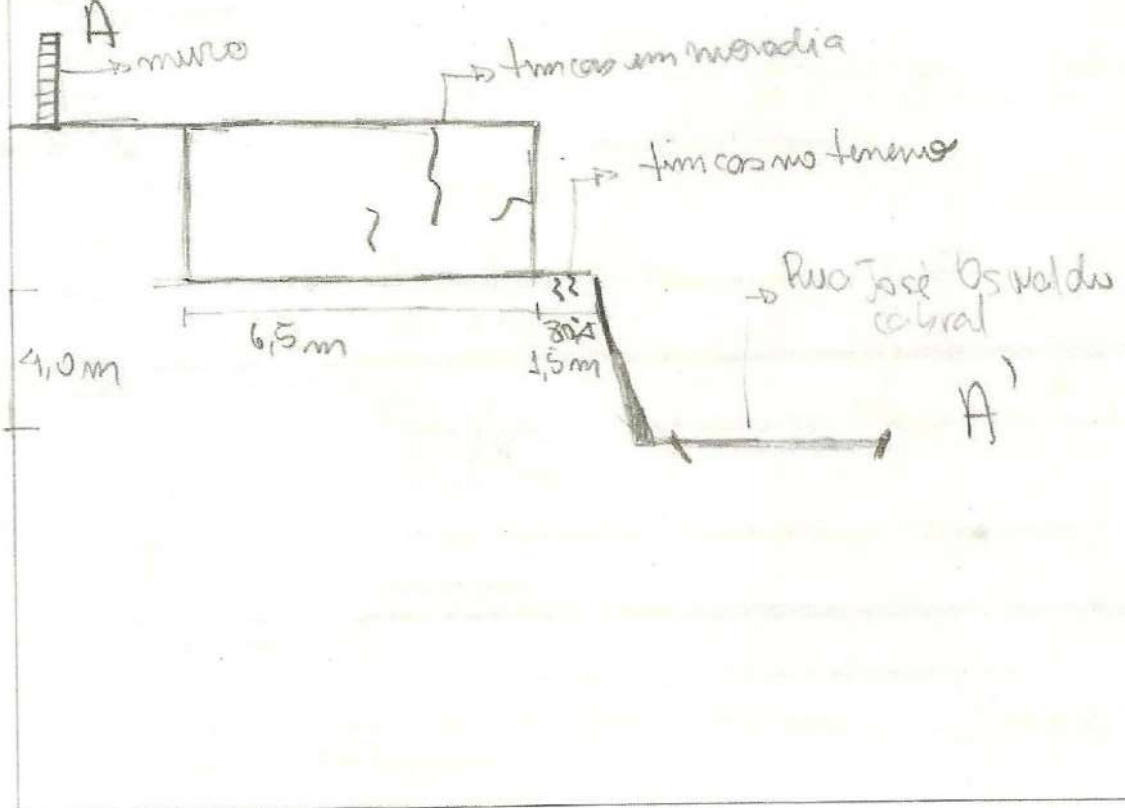 A
muro
trincas em moradia
trincas no terreno
Rua José Oswaldo
cabral
6,5m
1,5m
4,0m
A'